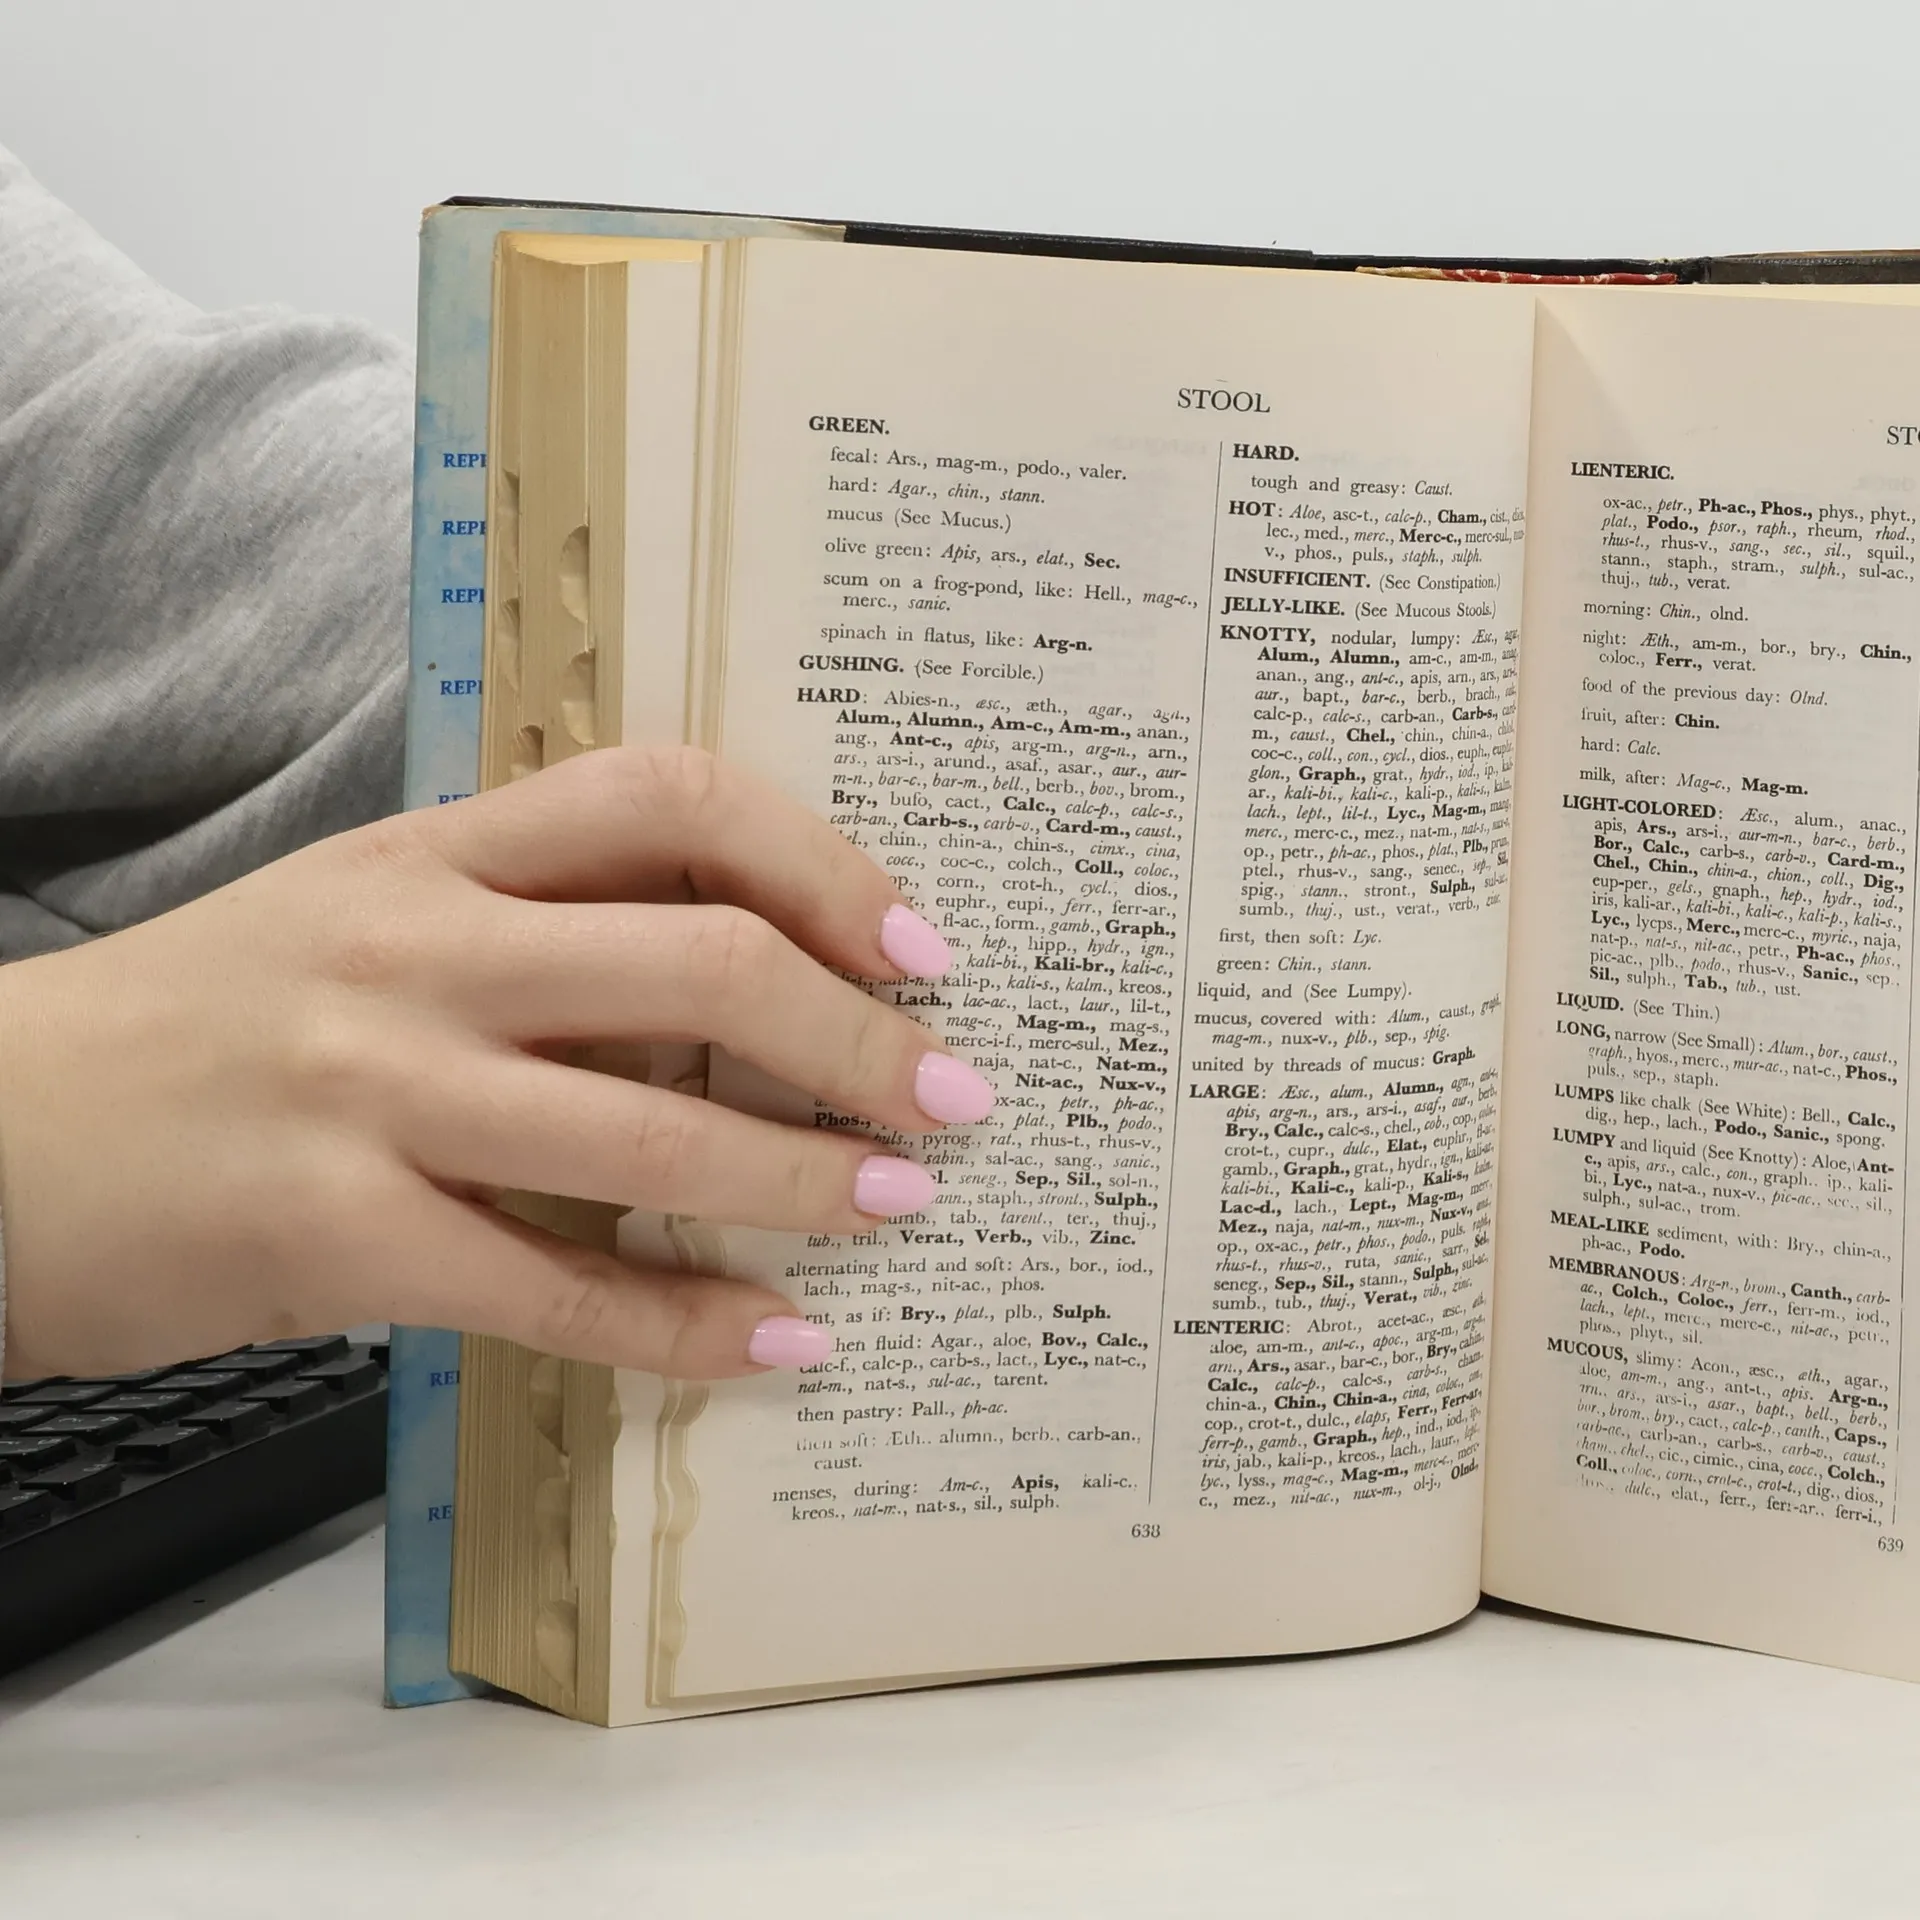 REPE
REPE
REPE
REPE
REPE
REI
RE
STOOL
GREEN.
fecal: Ars., mag-m., podo., valer.
hard: Agar., chin., stann.
mucus (See Mucus.)
olive green: Apis, ars., elat., Sec.
scum on a frog-pond, like: Hell., mag-c.,
merc., sanic.
spinach in flatus, like: Arg-n.
GUSHING. (See Forcible.)
HARD: Abies-n., æsc., æth., agar., agn.,
Alum., Alumn., Am-c., Am-m., anan.,
ang., Ant-c., apis, arg-m., arg-n., arn.,
ars., ars-i., arund., asaf., asar., aur., aur-
m-n., bar-c., bar-m., bell., berb., bov., brom.,
Bry., bufo, cact., Calc., calc-p., calc-s.,
carb-an., Carb-s., carb-v., Card-m., caust.,
chin., chin-a., chin-s., cimx., cina,
cocc., coc-c., colch., Coll., coloc.,
op., corn., crot-h., cycl., dios.,
euphr., eupi., ferr., ferr-ar.,
fl-ac., form., gamb., Graph.,
hep., hipp., hydr., ign.,
kali-bi., Kali-br., kali-c.,
kali-p., kali-s., kalm., kreos.,
Lach., lac-ac., lact., laur., lil-t.,
mag-c., Mag-m., mag-s.,
merc-i-f., merc-sul., Mez.,
naja, nat-c., Nat-m.,
Nit-ac., Nux-v.,
ox-ac., petr., ph-ac.,
Phos., plat., Plb., podo.,
puls., pyrog., rat., rhus-t., rhus-v.,
sabin., sal-ac., sang., sanic.,
seneg., Sep., Sil., sol-n.,
staph., stront., Sulph.,
tab., tarent., ter., thuj.,
tub., tril., Verat., Verb., vib., Zinc.
alternating hard and soft: Ars., bor., iod.,
lach., mag-s., nit-ac., phos.
rnt, as if: Bry., plat., plb., Sulph.
hen fluid: Agar., aloe, Bov., Calc.,
calc-f., calc-p., carb-s., lact., Lyc., nat-c.,
nat-m., nat-s., sul-ac., tarent.
then pastry: Pall., ph-ac.
then soft: Æth., alumn., berb., carb-an.,
caust.
menses, during: Am-c., Apis, kali-c.,
kreos., nat-m., nat-s., sil., sulph.
HARD.
tough and greasy: Caust.
HOT: Aloe, asc-t., calc-p., Cham., cist., dios.
lec., med., merc., Merc-c., merc-sul.,
v., phos., puls., staph., sulph.
INSUFFICIENT. (See Constipation.)
JELLY-LIKE. (See Mucous Stools.)
KNOTTY, nodular, lumpy: Æsc., agar.
Alum., Alumn., am-c., am-m., anac.
anan., ang., ant-c., apis, arn., ars.,
aur., bapt., bar-c., berb., brach.,
calc-p., calc-s., carb-an., Carb-s.,
m., caust., Chel., chin., chin-a.,
coc-c., coll., con., cycl., dios., euph., euphr.
glon., Graph., grat., hydr., iod., ip., kali-
ar., kali-bi., kali-c., kali-p., kali-s., kalm.
lach., lept., lil-t., Lyc., Mag-m., mang.
merc., merc-c., mez., nat-m., nat-s., nux-v.
op., petr., ph-ac., phos., plat., Plb., prun.
ptel., rhus-v., sang., senec., sep., Sil.
spig., stann., stront., Sulph., sul-ac.
sumb., thuj., ust., verat., verb., zinc.
first, then soft: Lyc.
green: Chin., stann.
liquid, and (See Lumpy).
mucus, covered with: Alum., caust., graph.
mag-m., nux-v., plb., sep., spig.
united by threads of mucus: Graph.
LARGE: Æsc., alum., Alumn., agn., ant-c.
apis, arg-n., ars., ars-i., asaf., aur., berb.
Bry., Calc., calc-s., chel., cob., cop., coloc.
crot-t., cupr., dulc., Elat., euphr., fl-ac.
gamb., Graph., grat., hydr., ign., kali-ar.
kali-bi., Kali-c., kali-p., Kali-s., kalm.
Lac-d., lach., Lept., Mag-m., merc.
Mez., naja, nat-m., nux-m., Nux-v.,
op., ox-ac., petr., phos., podo., puls., raph.
rhus-t., rhus-v., ruta, sanic., sarr., Sel.
seneg., Sep., Sil., stann., Sulph., sul-ac.
sumb., tub., thuj., Verat., vib., zinc.
LIENTERIC: Abrot., acet-ac., æsc., æth.
aloe, am-m., ant-c., apoc., arg-m., arg-n.
arn., Ars., asar., bar-c., bor., Bry., cahin.
Calc., calc-p., calc-s., carb-s., cham.
chin-a., Chin., Chin-a., cina, coloc., con.
cop., crot-t., dulc., elaps, Ferr., Ferr-ar.
ferr-p., gamb., Graph., hep., ind., iod., ip.
iris, jab., kali-p., kreos., lach., laur., lept.
lyc., lyss., mag-c., Mag-m., merc-c., merc-
c., mez., nit-ac., nux-m., ol-j., Olnd.
638
STO
LIENTERIC.
ox-ac., petr., Ph-ac., Phos., phys., phyt.,
plat., Podo., psor., raph., rheum, rhod.,
rhus-t., rhus-v., sang., sec., sil., squil.,
stann., staph., stram., sulph., sul-ac.,
thuj., tub., verat.
morning: Chin., olnd.
night: Æth., am-m., bor., bry., Chin.,
coloc., Ferr., verat.
food of the previous day: Olnd.
fruit, after: Chin.
hard: Calc.
milk, after: Mag-c., Mag-m.
LIGHT-COLORED: Æsc., alum., anac.,
apis, Ars., ars-i., aur-m-n., bar-c., berb.,
Bor., Calc., carb-s., carb-v., Card-m.,
Chel., Chin., chin-a., chion., coll., Dig.,
eup-per., gels., gnaph., hep., hydr., iod.,
iris, kali-ar., kali-bi., kali-c., kali-p., kali-s.,
Lyc., lycps., Merc., merc-c., myric., naja,
nat-p., nat-s., nit-ac., petr., Ph-ac., phos.,
pic-ac., plb., podo., rhus-v., Sanic., sep.,
Sil., sulph., Tab., tub., ust.
LIQUID. (See Thin.)
LONG, narrow (See Small): Alum., bor., caust.,
graph., hyos., merc., mur-ac., nat-c., Phos.,
puls., sep., staph.
LUMPS like chalk (See White): Bell., Calc.,
dig., hep., lach., Podo., Sanic., spong.
LUMPY and liquid (See Knotty): Aloe, Ant-
c., apis, ars., calc., con., graph., ip., kali-
bi., Lyc., nat-a., nux-v., pic-ac., sec., sil.,
sulph., sul-ac., trom.
MEAL-LIKE sediment, with: Bry., chin-a.,
ph-ac., Podo.
MEMBRANOUS: Arg-n., brom., Canth., carb-
ac., Colch., Coloc., ferr., ferr-m., iod.,
lach., lept., merc., merc-c., nit-ac., petr.,
phos., phyt., sil.
MUCOUS, slimy: Acon., æsc., æth., agar.,
aloe, am-m., ang., ant-t., apis, Arg-n.,
arn., ars., ars-i., asar., bapt., bell., berb.,
bor., brom., bry., cact., calc-p., canth., Caps.,
carb-ac., carb-an., carb-s., carb-v., caust.,
cham., chel., cic., cimic., cina, cocc., Colch.,
Coll., coloc., corn., crot-c., crot-t., dig., dios.,
dulc., elat., ferr., ferr-ar., ferr-i.,
639